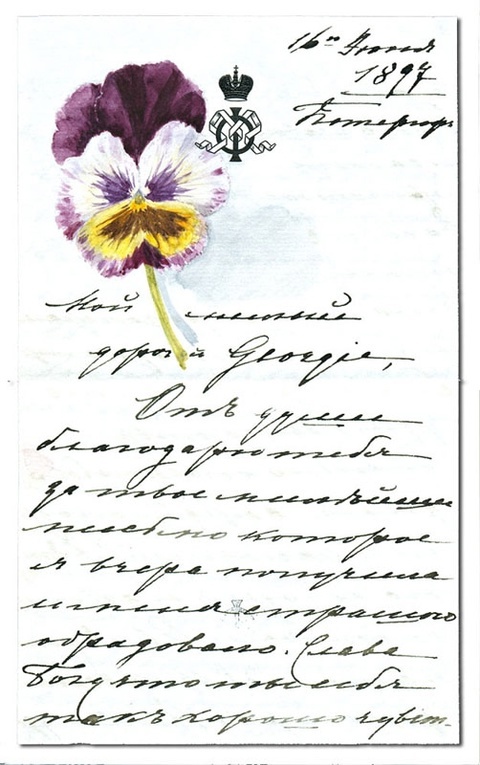 16го Июня
1897
Петергоф.
Мой милый
дорогой Georgie,
Отъ души
благодарю тебя
за твое милѣйшее
письмо которое
я вчера получила
и меня страшно
обрадовало. Слава
Богу что ты себя
такъ хорошо чувст-